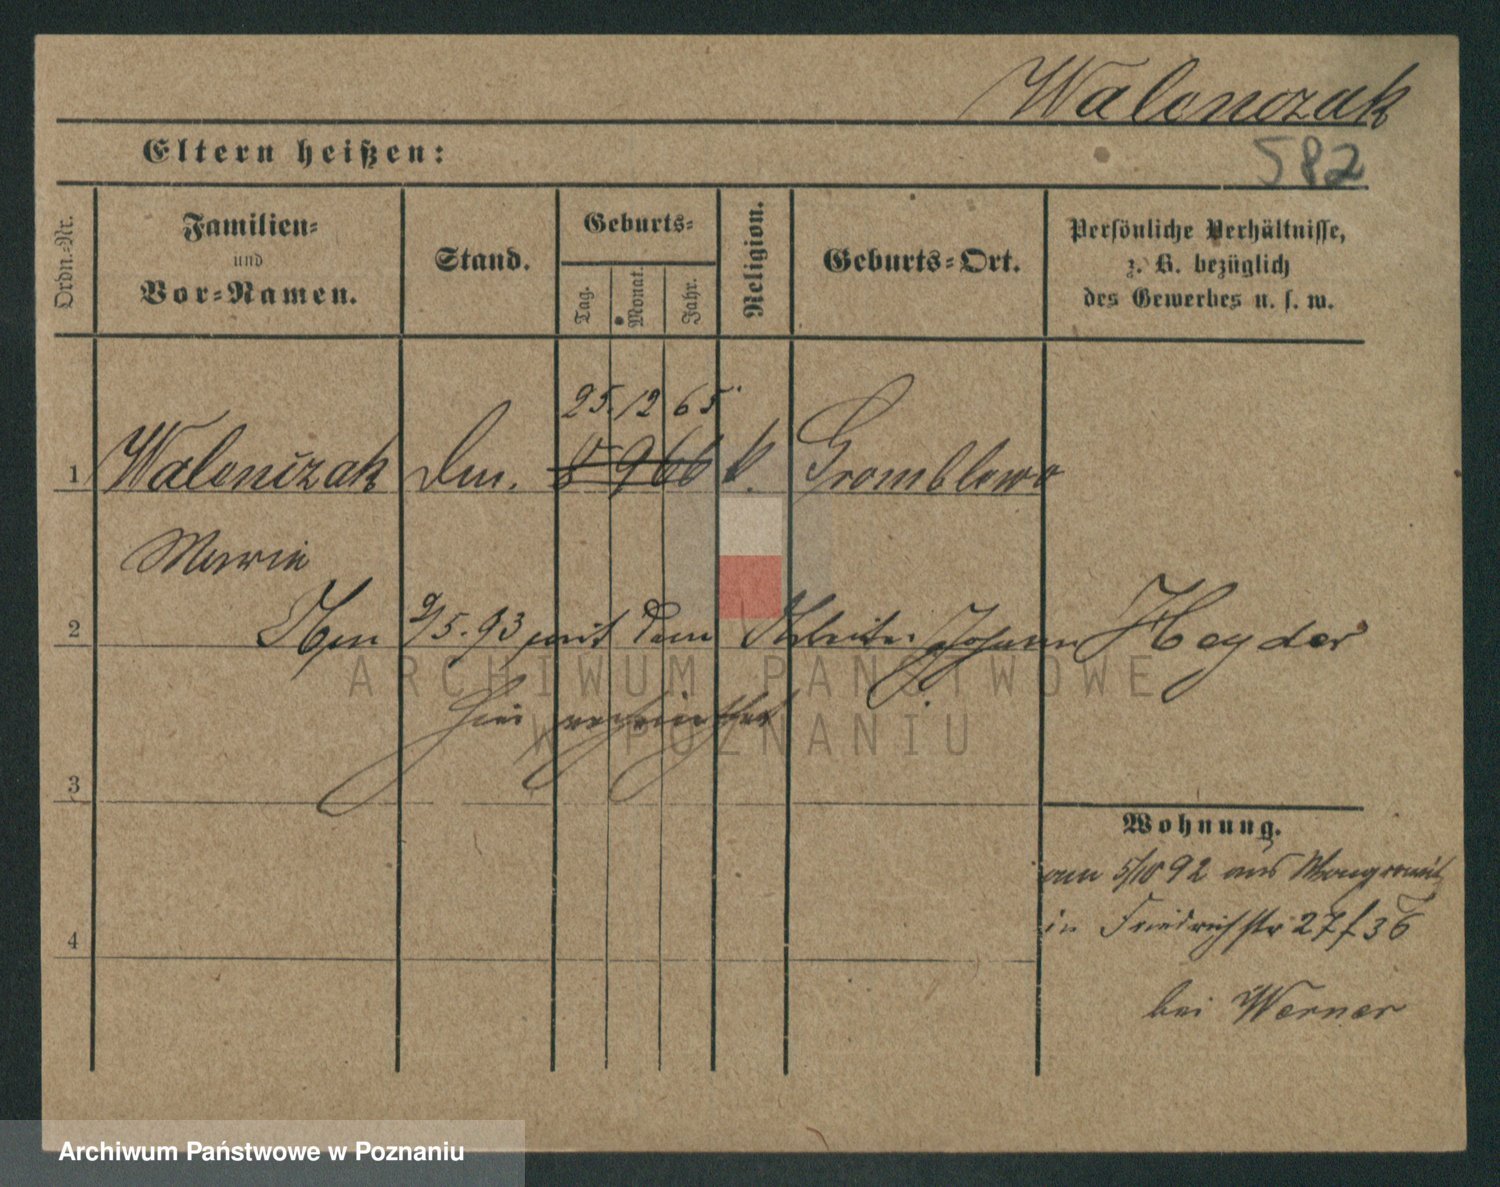 Walenczak
Eltern heißen:
582
Ordn.-Nr.
Familien-
und
Vor-Namen.
Stand.
Geburts-
Tag.
Monat.
Jahr.
Religion.
Geburts-Ort.
Persönliche Verhältnisse,
z. B. bezüglich
des Gewerbes u. s. w.
25. 12 65
1 Walenczak 9 66 k. Gromblewo
Marie
2 Am 9/5.93 mit dem Arbeiter Johann Heyder
ARCHIWUM PAŃSTWOWE
hier verheirathet
W POZNANIU
3
Wohnung.
am 5/10 92 aus Wongrowitz
in Friedrichstr 27
4
bei Werner
Archiwum Państwowe w Poznaniu